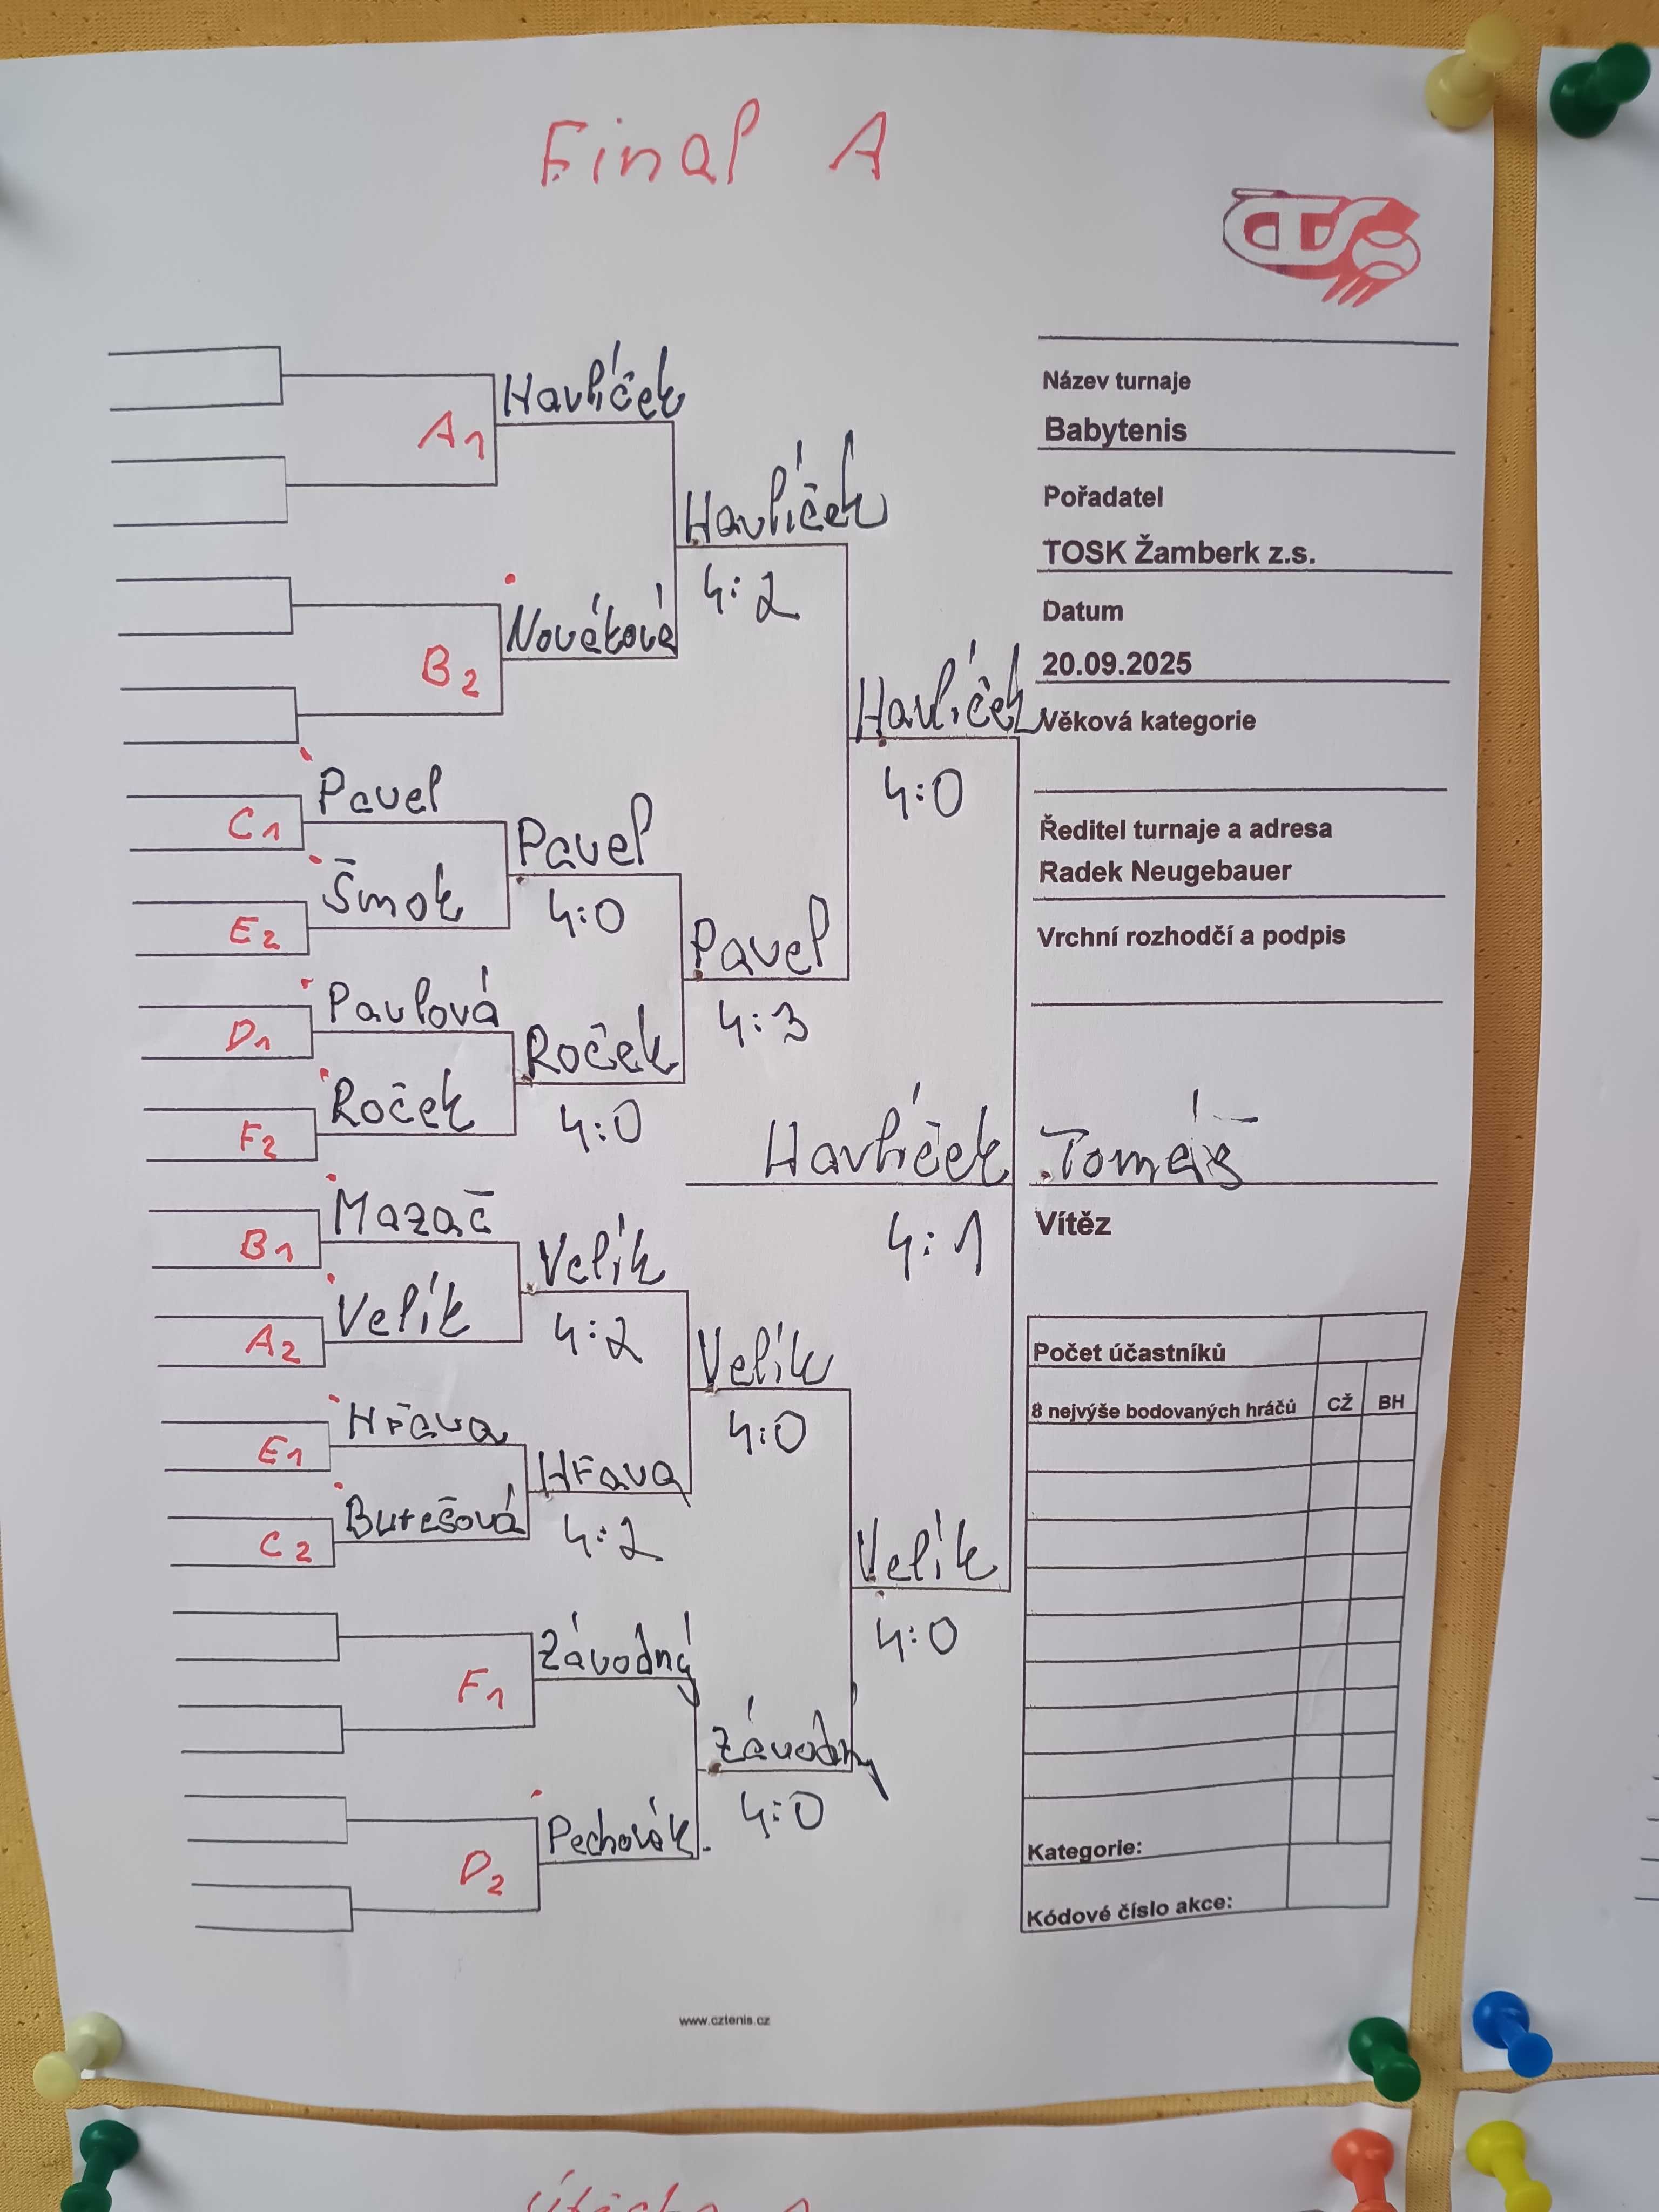 Final A
ČTS
Havlíček
A1
Havlíček
4:2
Nováková
B2
Havlíček
4:0
Pavel
C1
Pavel
4:0
Šmok
E2
Pavel
4:3
Pavlová
D1
Roček
4:0
Roček
F2
Havlíček Tomáš
4:1
Mazač
B1
Velík
4:2
Velík
A2
Velík
4:0
Hřava
E1
Hřava
4:2
Burešová
C2
Velík
4:0
Závodný
F1
Závodný
4:0
Pechovák.
D2
Název turnaje
Babytenis
Pořadatel
TOSK Žamberk z.s.
Datum
20.09.2025
Věková kategorie
Ředitel turnaje a adresa
Radek Neugebauer
Vrchní rozhodčí a podpis
Vítěz
Počet účastníků
8 nejvýše bodovaných hráčů CŽ BH
Kategorie:
Kódové číslo akce:
www.cztenis.cz